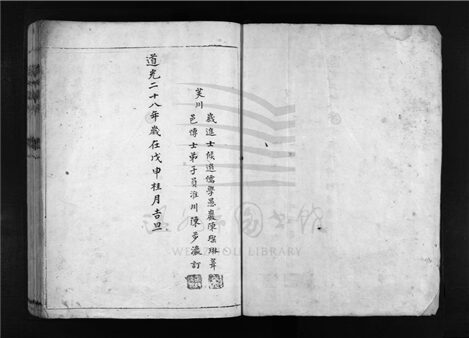 芙川
歲進士候選儒學愚巖陳璨琳葺
邑博士弟子員淮川陳步瀛訂
道光二十八年歲在戊申桂月吉旦
WENZHOU LIBRARY